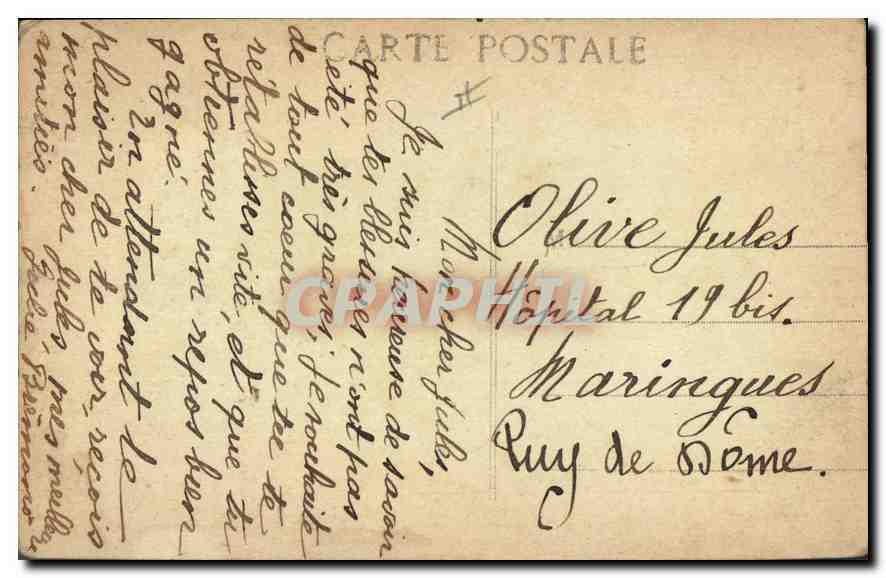 CARTE POSTALE
Mon cher Jules,
Je suis heureuse de savoir
que tes blessures n'ont pas
été très graves, je souhaite
de tout coeur que tu te
rétablisses vite, et que tu
obtiennes un repos bien
gagné.
En attendant le
plaisir de te voir, reçois
mon cher Jules mes meilleures
amitiés.
Olive Jules
Hôpital 19 bis.
Maringues
Puy de Dôme.
CRAPHIL